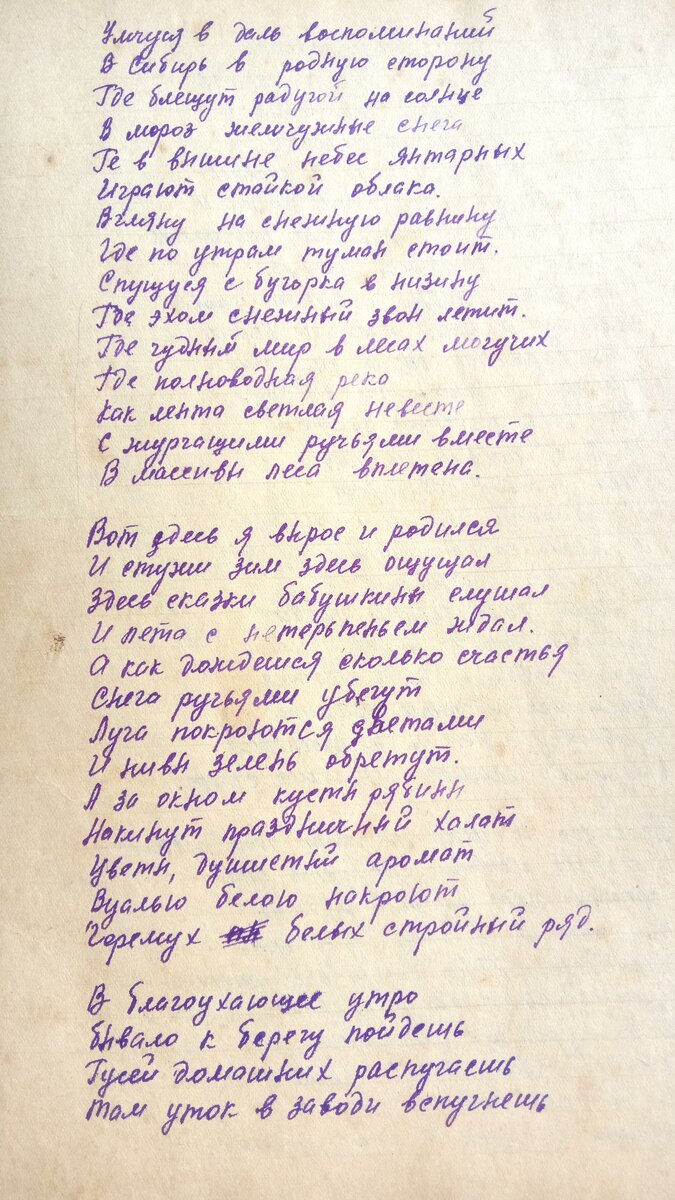 Умчуся в даль воспоминаний
В Сибирь в родную сторону
Где блещут радугой на солнце
В мороз жемчужные снега
Ге в вышине небес янтарных
Играют стайкой облака.
Взгляну на снежную равнину
Где по утрам туман стоит.
Спущуся с бугорка в низину
Где эхом снежный звон летит.
Где чудный мир в лесах могучих
Где полноводная река
Как лента светлая невесте
С журчащими ручьями вместе
В массивы леса вплетена.
Вот здесь я вырос и родился
И стужи зим здесь ощущал
Здесь сказки бабушкины слушал
И лета с нетерпеньем ждал.
А как дождешся сколько счастья
Снега ручьями убегут
Луга покроются цветами
И нивы зелень обретут.
А за окном кусты рябины
Накинут праздничный халат
Цветы, душистый аромат
Вуалью белою накроют
Черемух белых стройный ряд.
В благоухающее утро
бывало к берегу пойдешь
Гусей домашних распугаешь
Там уток в заводи вспугнешь